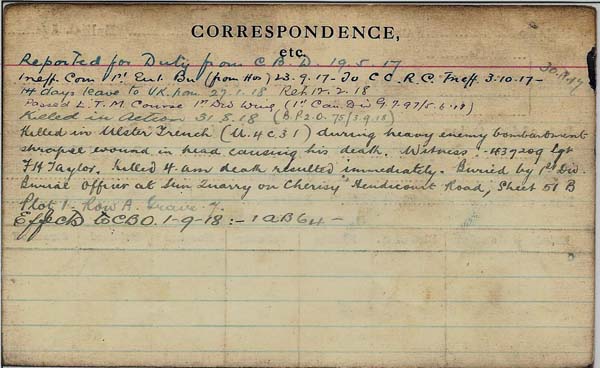 CORRESPONDENCE,
etc.
Reported for Duty from C.B.D. 19.5.17
Ineff. Com 1st Ent. Bn (from Hos) 23.9.17 - To C.C.R.C. Ineff 3-10-17 -
14 days leave to UK from 27.1.18 Ret 17.2.18
Passed L.T.M Course 1st Div Wing (1st Can. Div
Killed in Action 31.8.18 (B.P2.O. 75/3.9.18)
Killed in Ulster Trench (U.4c.31) during heavy enemy bombardment
shrapnel wound in head causing his death. Witness :- 437209 Sgt
F.H Taylor. Killed 4 am death resulted immediately. Buried by 1st Div.
Burial Officer at Sun Quarry on Cherisy Hendicourt Road, Sheet 51 B
Plot 1. Row A. Grave 7.
Effects to CBO. 1-9-18 :- 1 AB64 -